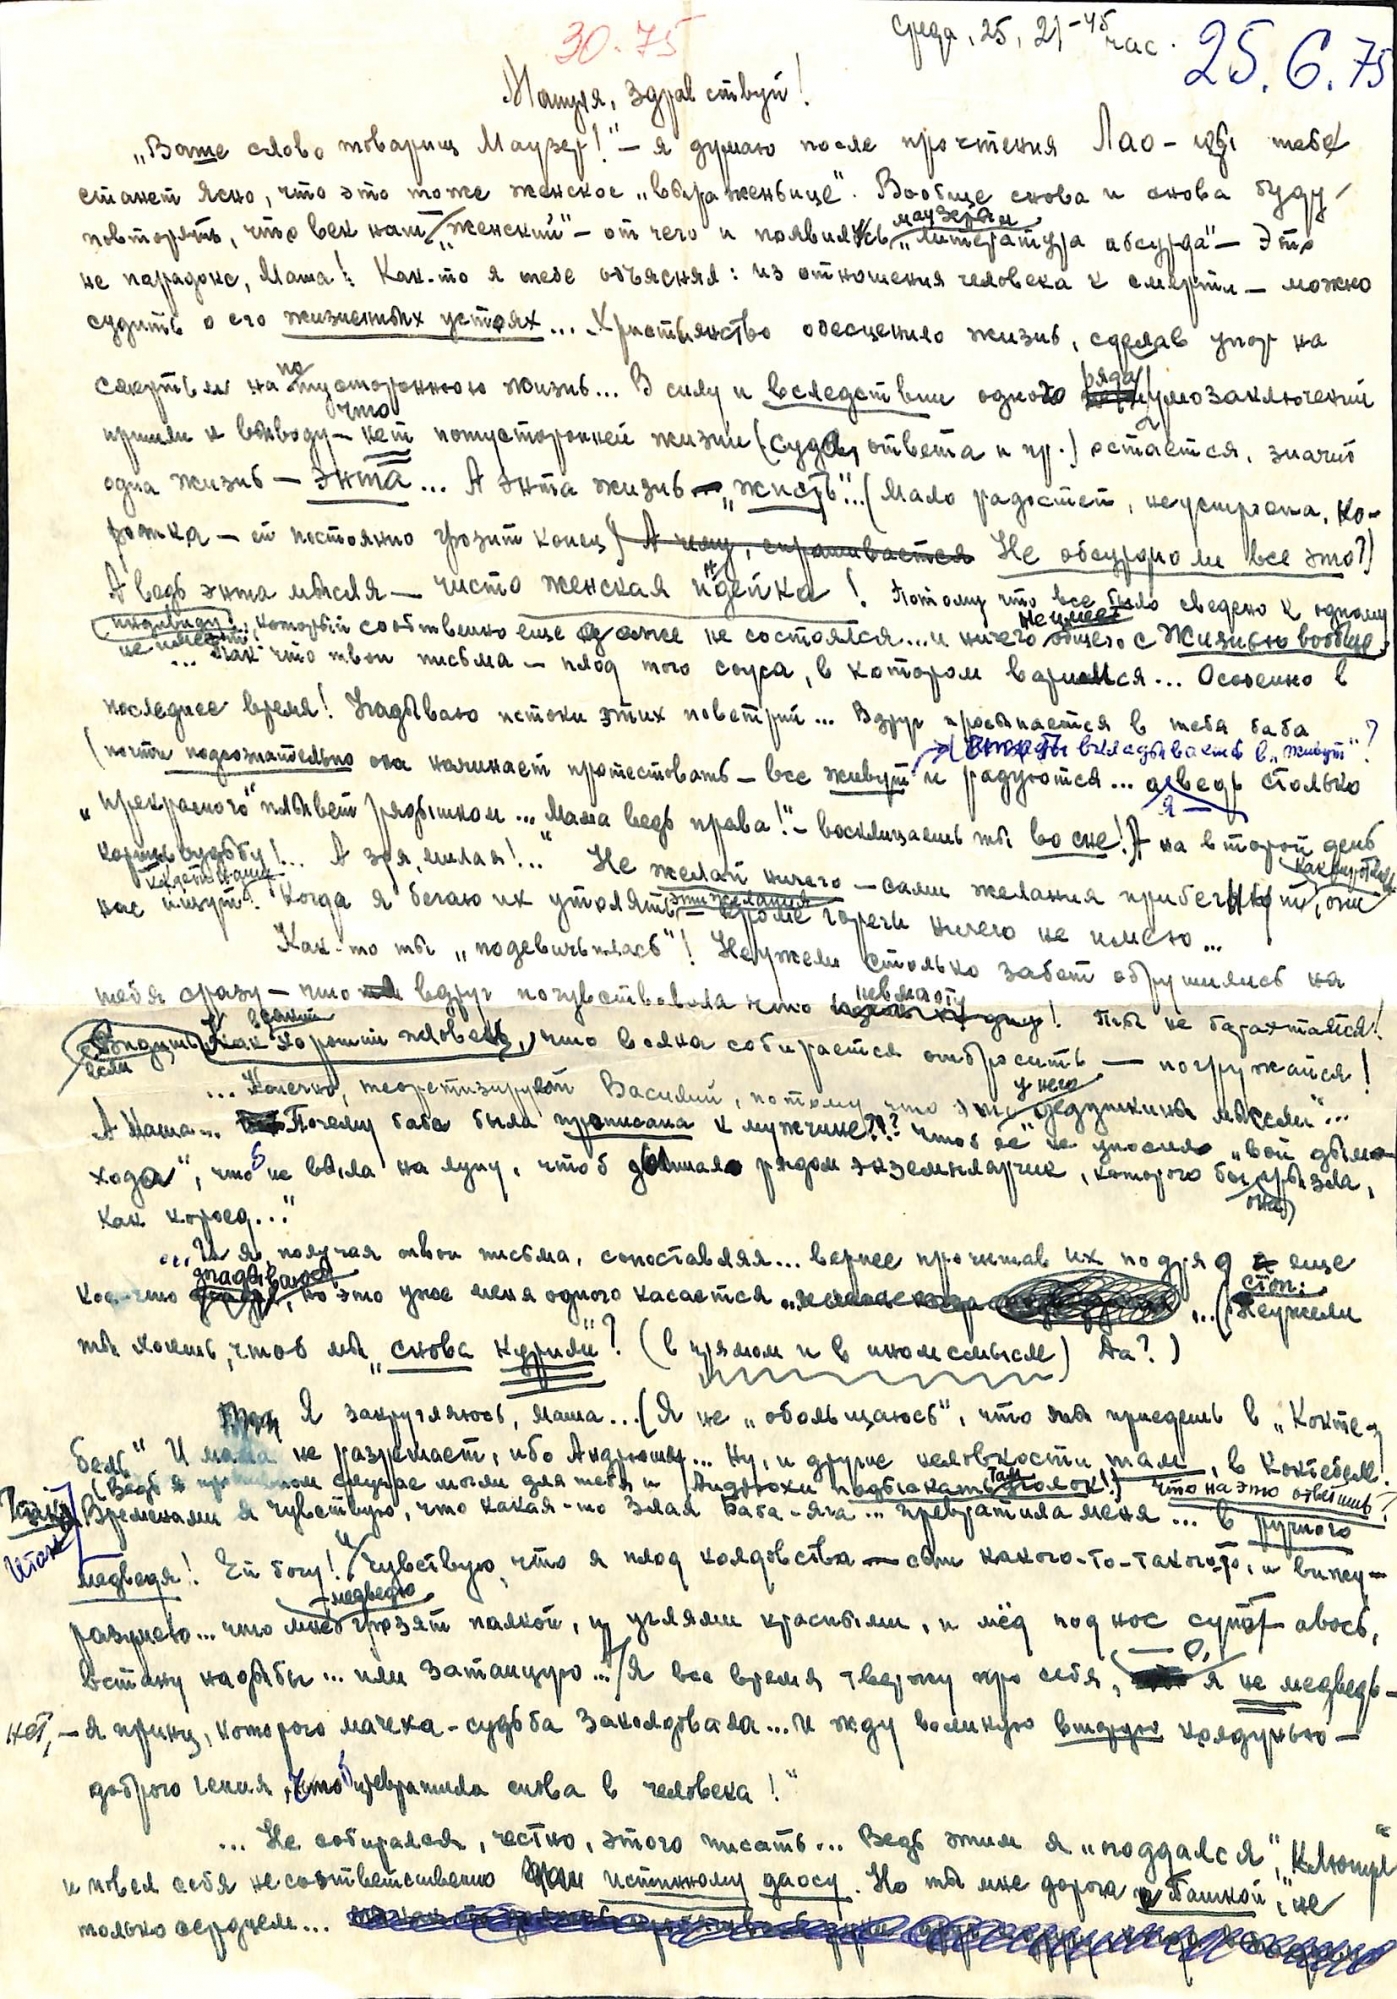 30.75
Среда, 25, 21-45 час.
25.6.75
Машуня, здравствуй!
„Ваше слово товарищ Маузер!" — я думаю после прочтения Лао-цзы тебе
станет ясно, что это тоже женское „выраженьице". Вообще снова и снова буду
повторять, что век наш „женский" — от чего и появилась маузеры и „литература абсурда" — Это
не парадокс, Маша! Как-то я тебе объяснял: из отношения человека к смерти — можно
судить о его жизненных устоях... Христьянство обесценило жизнь, сделав упор на
смерть и на потустороннюю жизнь... В силу и вследствии одного ряда умозаключений
пришли к выводу — что нет потусторонней жизни (суда, ответа и пр.) остается, значит
одна жизнь — энта... А энта жизнь — „жисть"... (Мало радостей, неустроена, ко-
ротка — ей постоянно грозит конец) А чему, спрашивается Не абсурдно ли все это?)
А ведь энта мысля — чисто женская идейка! Потому что все было сведено к одному
индивиду, который собственно еще даже не состоялся... и ничего не имеет общего с Жизнью вообще.
... Так что твои письма — плод того соуса, в котором варимся... Особенно в
последнее время! Угадываю истоки этих поветрий... Вдруг просыпается в тебя баба
вкладывается в „живут"?
(почти подсознательно она начинает протестовать — все живут и радуются... а ведь столько
„прекрасного" плывет рядышком... Мама ведь права!" — восклицаешь ты во сне! А на второй день
коришь судьбу!... А зря, милая!... Не желай ничего — сами желания прибегут, они
нас ищут! Когда я бегаю их утолять — эти желания — кроме горечи ничего не имею...
Как-то ты „подевичьилась"! Неужели столько забот обрушились на
тебя сразу — что вдруг почувствовала что невмоготу! Ты не барахтайся!
если Видишь, как всякий хороший пловец, что волна собирается отбросить — погружайся!
... Конечно, теоретизируй Василий, потому что у него эти „дедушкины мысли"...
А Наша... Почему баба была прописана к мужчине??? Чтоб ее „не уносило „вой дымо-
хода", чтоб не выла на луну, чтоб дышал рядом экземплярчик, которого бы она грызла,
как короед..."
... И я получая твои письма, сопоставляя... вернее прочитав их подряд еще
кое-что угадываю, но это уже меня одного касается ... (стоп: Неужели
ты хочешь, чтоб мы „снова курили"? (в прямом и в ином смысле) Да?)
Я закругляюсь, Маша... (Я не „обольщаюсь", что ты приедешь в „Кокте-
бель" И мама не разрешает, ибо Андрюша... Ну, и другие неловкости там, в Коктебеле!
(Ведь в противном случае могли для тебя и Андрюхи подыскать там уголок!) Что на это ответишь?
Итак, Временами я чувствую, что какая-то злая Баба-яга... превратила меня... в ручного
медведя! Ей богу! И чувствую, что я плод колдовства — сын какого-то-такого-то, и вижу —
разумею... что мне — медведю грозят палкой, и углями красными, и мёд под нос суют — авось,
встану на дыбы... или затанцую... Я все время твержу про себя, — О, я не медведь —
нет, — я принц, которого мачеха-судьба заколдовала... И жду великую вторую колдунью —
доброго гения, чтоб превратила снова в человека!"
... Не собирался, честно, этого писать... Ведь этим я „поддался", „Клюнул"
и повел себя не соответственно истинному даосу. Но ты мне дорога и „Башкой", не
только сердцем...